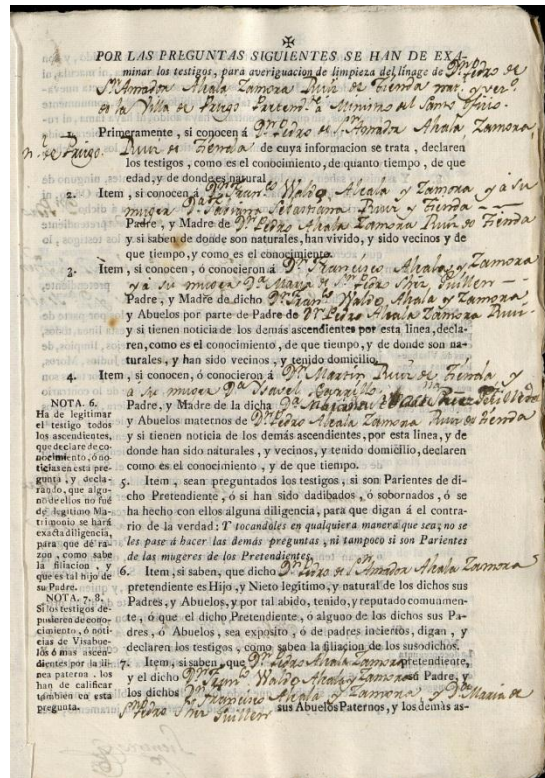 ✠
POR LAS PREGUNTAS SIGUIENTES SE HAN DE EXA-
minar los testigos, para averiguacion de limpieza del linage de Dn. Pedro de
Sn. Amador Alcala Zamora Ruiz de Tienda nat. y vezo.
en la Villa de Priego Pretendte. Ministro del Santo Oficio.
Primeramente, si conocen á Dn. Pedro de Sn. Amador Alcala Zamora
n. de Priego. Ruiz de Tienda de cuya informacion se trata, declaren
los testigos, como es el conocimiento, de quanto tiempo, de que
edad, y de donde es natural
2. Item, si conocen á Dn. Franco. Waldo Alcala y Zamora y á su
muger Da. Sebastiana Ruiz y Tienda
Padre, y Madre de Dn. Pedro Alcala Zamora Ruiz de Tienda
y si saben de donde son naturales, han vivido, y sido vecinos y de
que tiempo, y como es el conocimiento.
3. Item, si conocen, ó conocieron á Dn. Francisco Alcala y Zamora
y á su muger Da. Maria de Sn. Pedro Guillen
Padre, y Madre de dicho Dn. Franco. Waldo Alcala y Zamora
y Abuelos por parte de Padre de Dn. Pedro Alcala Zamora Ruiz
y si tienen noticia de los demás ascendientes por esta linea, decla-
ren, como es el conocimiento, de que tiempo, y de donde son na-
turales, y han sido vecinos, y tenido domicilio.
4. Item, si conocen, ó conocieron á Dn. Martin Ruiz de Tienda y
á su muger Da. Ysavel
Padre, y Madre de la dicha Da.
y Abuelos maternos de Dn. Pedro Alcala Zamora Ruiz de Tienda
y si tienen noticia de los demás ascendientes, por esta linea, y de
donde han sido naturales, y vecinos, y tenido domicilio, declaren
como es el conocimiento, y de que tiempo.
5. Item, sean preguntados los testigos, si son Parientes de di-
cho Pretendiente, ó si han sido dadibados, ó sobornados, ó se
ha hecho con ellos alguna diligencia, para que digan á el contra-
rio de la verdad: Y tocandoles en qualquiera manera que sea, no se
les pase á hacer las demás preguntas, ni tampoco si son Parientes
de las mugeres de los Pretendientes.
6. Item, si saben, que dicho Dn. Pedro de Sn. Amador Alcala Zamora
pretendiente es Hijo, y Nieto legitimo, y natural de los dichos sus
Padres, y Abuelos, y por tal abido, tenido, y reputado comuamen-
te, ó que el dicho Pretendiente, ó alguno de los dichos sus Pa-
dres, ó Abuelos, sea exposito, ó de padres inciertos, digan, y
declaren los testigos, como saben la filiacion de los susodichos.
7. Item, si saben, que Dn. Pedro Alcala Zamora pretendiente,
y el dicho Dn. Franco. Waldo Alcala y Zamora su Padre, y
los dichos Dn. Francisco Alcala y Zamora, y Da. Maria de
Sn. Pedro Guillen sus Abuelos Paternos, y los demás as-
NOTA. 6.
Ha de legitimar
el testigo todos
los ascendientes,
que declare de co-
nocimiento, ó no-
ticias en esta pre-
gunta, y decla-
rando, que algu-
no de ellos no fué
de legitimo Ma-
trimonio se hará
exacta diligencia,
para que dé ra-
zon, como sabe
la filiacion, y
que es tal hijo de
su Padre.
NOTA. 7. 8.
Si los testigos de-
pusieren de cono-
cimiento, ó noti-
cias de Visabue-
los ó mas ascen-
dientes por la li-
nea paterna, los
han de calificar
tambien en esta
pregunta.